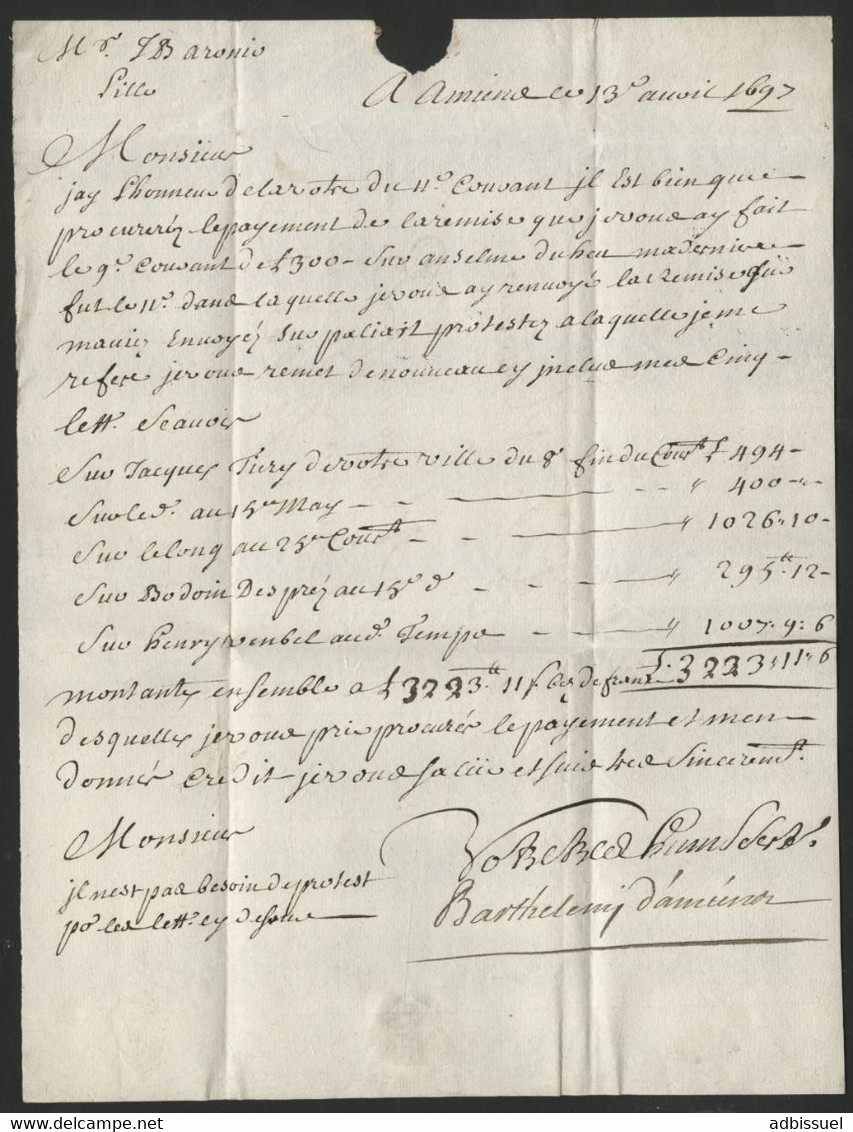 Mr. J B aronio
Lille
A amiens ce 13e. avril 1697
Monsieur
jay l'honneur de la votre du 11e. Courant jl Est bien que
procureréz le payement de la remise que je vous ay fait
le 9e. Courant de £300- Sur anselme du heu ma derniere
fut le 11e. dans laquelle je vous ay renvoyé la Remise que
maviez Envoyéz Sur paliart protestez a laquelle je me
refere je vous remet de nouveau cy jnclus mes Cinq
lett. Scavoir
Sur Jacques de votre ville du 8e fin du Court £ 494-
Sur led. au 15e May - - " 400-"-
Sur lelong au 25e Court - " 1026"10-
Sur Bodoin Despréz au 15e d - " 295tt"12-
Sur henry wenbel aud. Temps - " 1007"9"6
£ 3223"11"6
montants ensemble a £3223tt 11s 6 de france
desquelles je vous prie procurér le payement et men
donnér Crédit je vous salüe et suis tres Sinceremt.
Monsieur
Votre tres humb Servt.
jl nest pas besoin de protest
po. les lett. cy dessus
Barthelemy d'amiéns
adbissuel